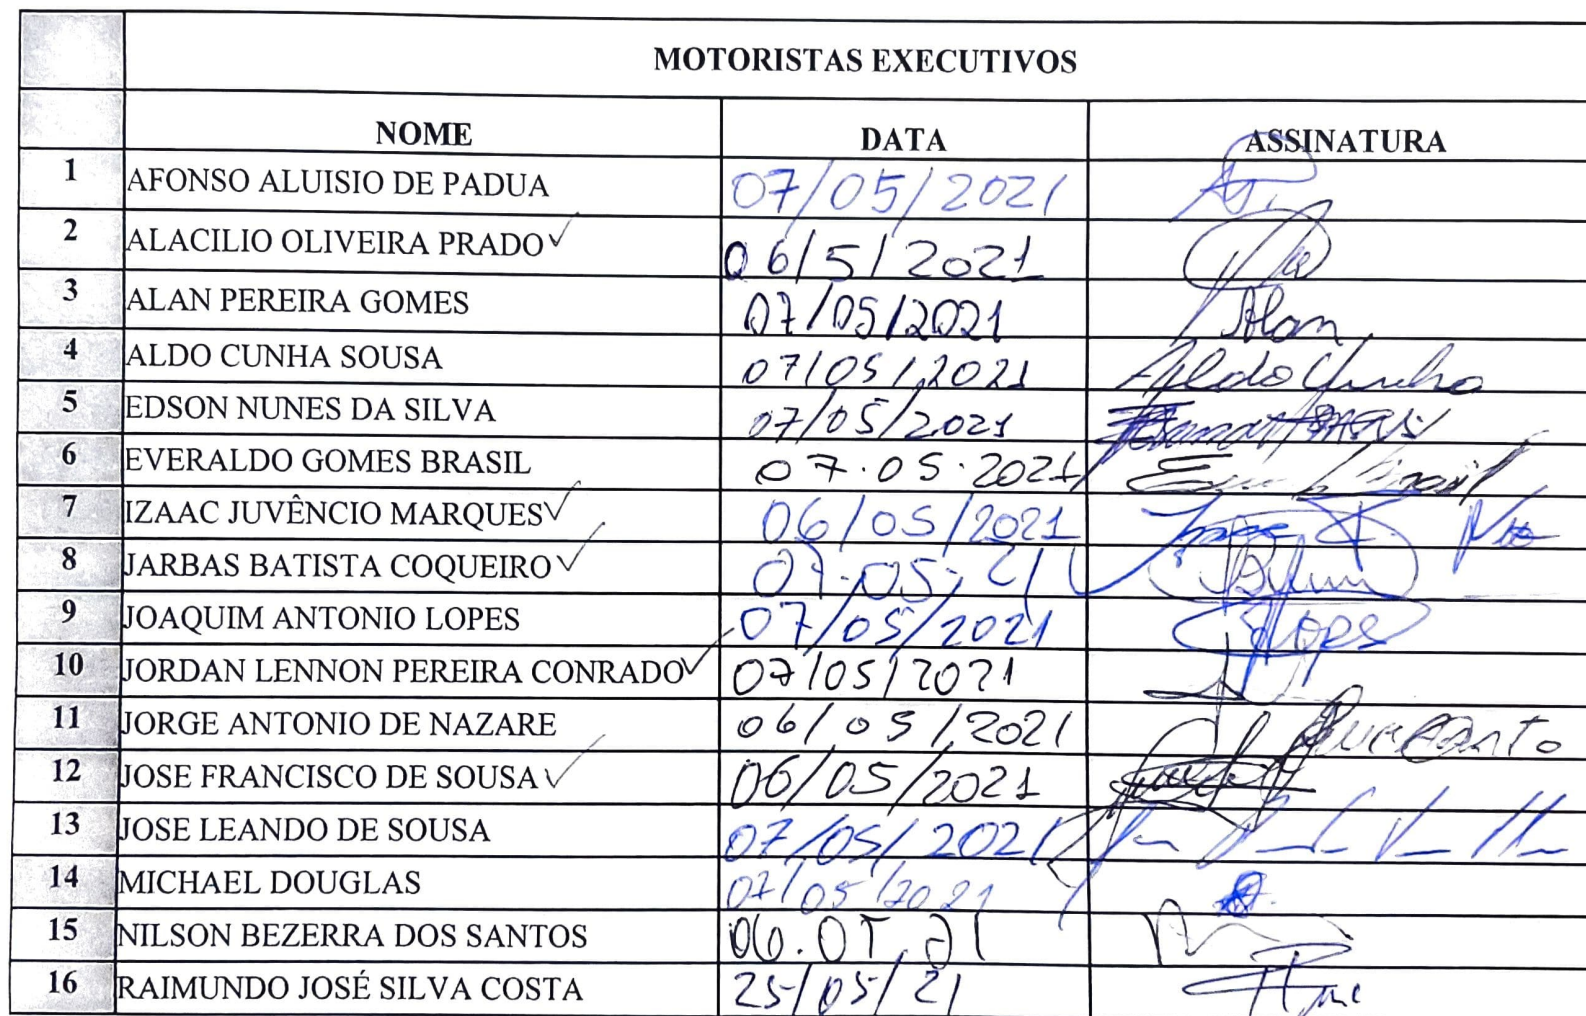 MOTORISTAS EXECUTIVOS
NOME DATA ASSINATURA
1 AFONSO ALUISIO DE PADUA 07/05/2021
2 ALACILIO OLIVEIRA PRADO 06/5/2021
3 ALAN PEREIRA GOMES 07/05/2021 Alan
4 ALDO CUNHA SOUSA 07/05/2021 Aldo Cunha
5 EDSON NUNES DA SILVA 07/05/2021
6 EVERALDO GOMES BRASIL 07.05.2021 Brasil
7 IZAAC JUVÊNCIO MARQUES 06/05/2021
8 JARBAS BATISTA COQUEIRO 07.05.21
9 JOAQUIM ANTONIO LOPES 07/05/2021 Lopes
10 JORDAN LENNON PEREIRA CONRADO 07/05/2021
11 JORGE ANTONIO DE NAZARE 06/05/2021
12 JOSE FRANCISCO DE SOUSA 06/05/2021
13 JOSE LEANDO DE SOUSA 07/05/2021
14 MICHAEL DOUGLAS 07/05/2021
15 NILSON BEZERRA DOS SANTOS 06.05.21
16 RAIMUNDO JOSÉ SILVA COSTA 25/05/21